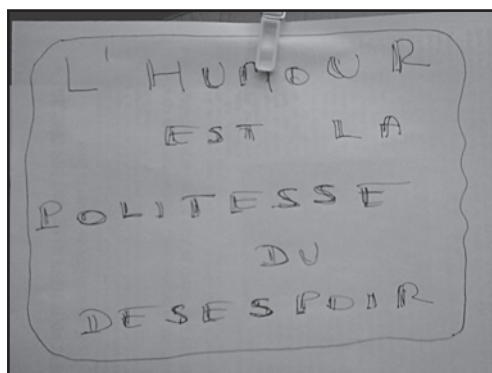 L'HUMOUR
EST LA
POLITESSE
DU
DESESPOIR